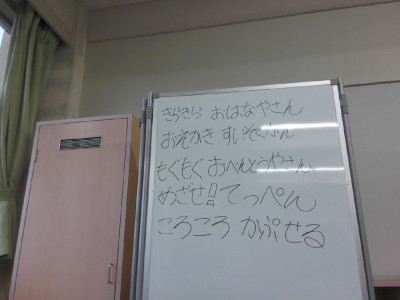 きらきら おはなやさん
おえかき すいぞくかん
もくもく おべんとうやさん
めざせ!! てっぺん
ころころ かぷせる